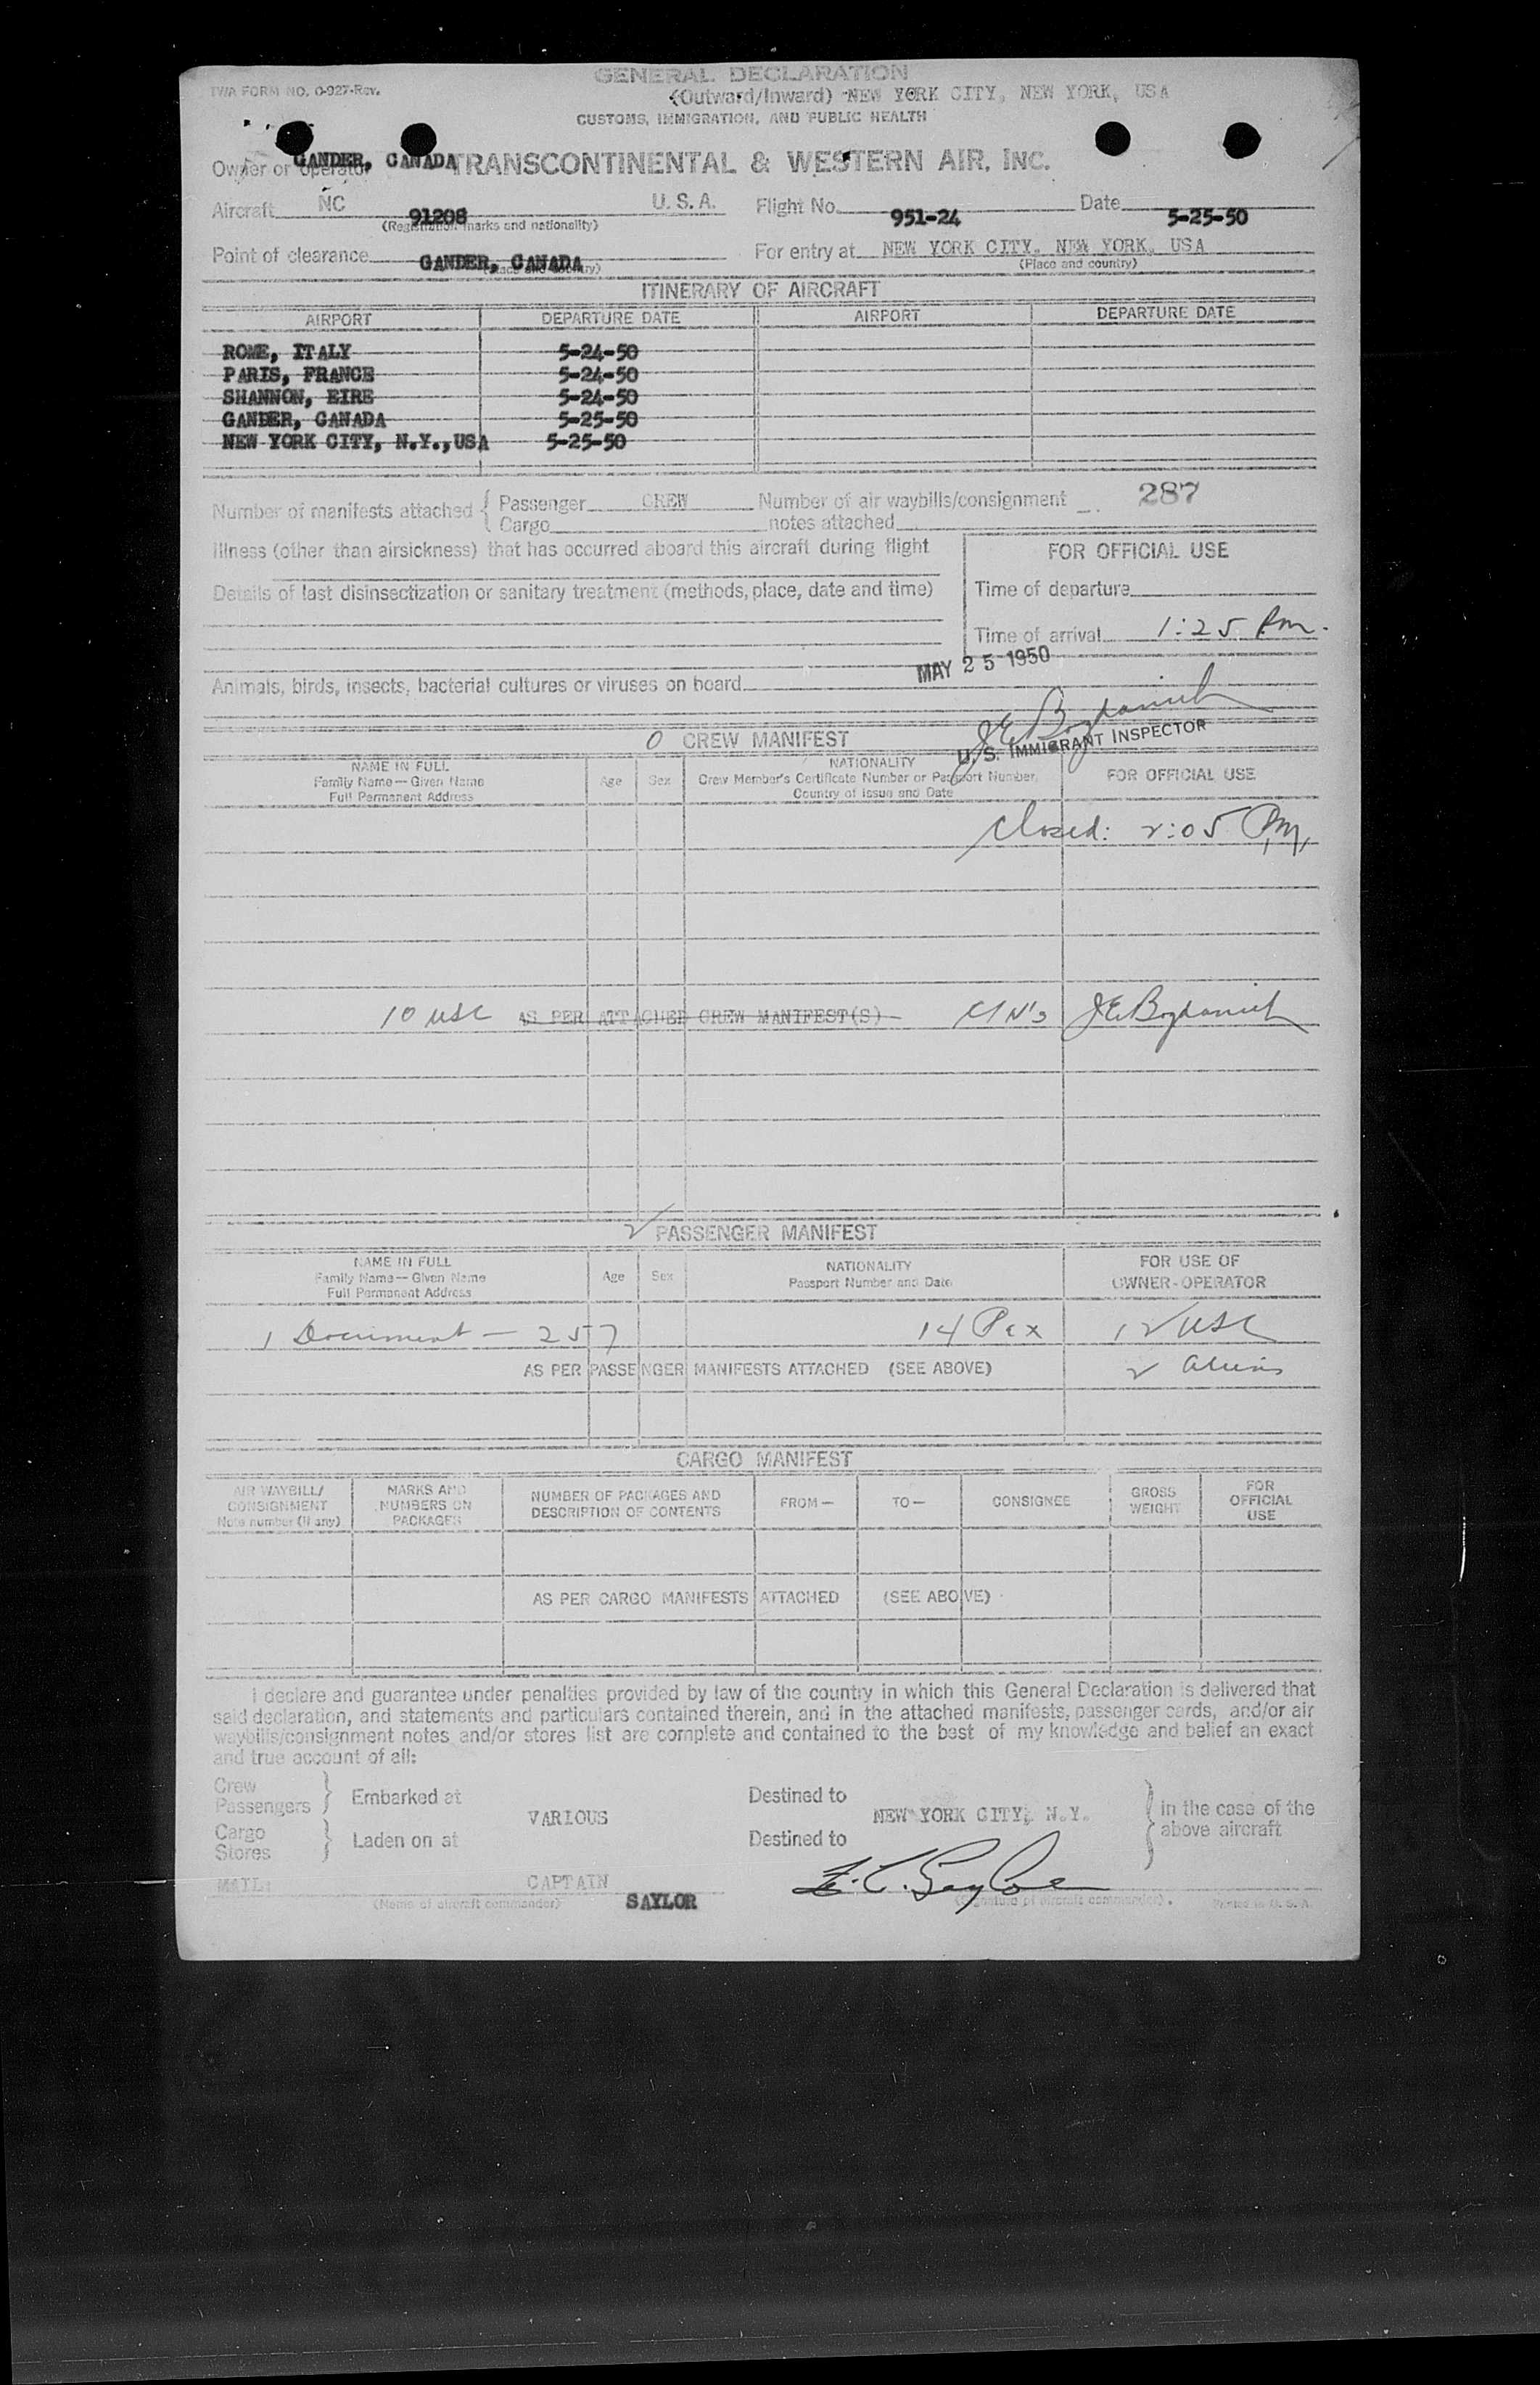 GENERAL DECLARATION
TWA FORM NO. O-927-Rev.
(Outward/Inward) NEW YORK CITY, NEW YORK, USA
CUSTOMS, IMMIGRATION, AND PUBLIC HEALTH
GANDER, CANADA
Owner or operator TRANSCONTINENTAL & WESTERN AIR, INC.
Aircraft NC 91208 U. S. A. Flight No. 951-24 Date 5-25-50
(Registration marks and nationality)
Point of clearance GANDER, CANADA For entry at NEW YORK CITY, NEW YORK, USA
(Place and country) (Place and country)
ITINERARY OF AIRCRAFT
AIRPORT DEPARTURE DATE AIRPORT DEPARTURE DATE
ROME, ITALY 5-24-50
PARIS, FRANCE 5-24-50
SHANNON, EIRE 5-24-50
GANDER, CANADA 5-25-50
NEW YORK CITY, N.Y.,USA 5-25-50
Number of manifests attached { Passenger CREW Number of air waybills/consignment 287
Cargo notes attached
Illness (other than airsickness) that has occurred aboard this aircraft during flight
FOR OFFICIAL USE
Details of last disinsectization or sanitary treatment (methods, place, date and time)
Time of departure
Time of arrival 1:25 Pm.
MAY 25 1950
Animals, birds, insects, bacterial cultures or viruses on board
J E Bogdanich
U. S. IMMIGRANT INSPECTOR
0 CREW MANIFEST
NAME IN FULL
Family Name — Given Name
Full Permanent Address
Age Sex
NATIONALITY
Crew Member's Certificate Number or Passport Number,
Country of Issue and Date
FOR OFFICIAL USE
Closed: 2:05 P.M.
10 USC AS PER ATTACHED CREW MANIFEST(S) J E Bogdanich
2 PASSENGER MANIFEST
NAME IN FULL
Family Name — Given Name
Full Permanent Address
Age Sex
NATIONALITY
Passport Number and Date
FOR USE OF
OWNER-OPERATOR
1 Document — 257 14 Pax 12 USC
AS PER PASSENGER MANIFESTS ATTACHED (SEE ABOVE) 2 Aliens
CARGO MANIFEST
AIR WAYBILL/
CONSIGNMENT
Note number (if any)
MARKS AND
NUMBERS ON
PACKAGES
NUMBER OF PACKAGES AND
DESCRIPTION OF CONTENTS
FROM —
TO —
CONSIGNEE
GROSS
WEIGHT
FOR
OFFICIAL
USE
AS PER CARGO MANIFESTS ATTACHED (SEE ABOVE)
I declare and guarantee under penalties provided by law of the country in which this General Declaration is delivered that
said declaration, and statements and particulars contained therein, and in the attached manifests, passenger cards, and/or air
waybills/consignment notes and/or stores list are complete and contained to the best of my knowledge and belief an exact
and true account of all:
Crew
Passengers } Embarked at VARIOUS Destined to NEW YORK CITY, N.Y. } in the case of the
above aircraft
Cargo
Stores } Laden on at Destined to
MAIL: CAPTAIN SAYLOR
(Name of aircraft commander) (Signature of aircraft commander). Printed in U. S. A.